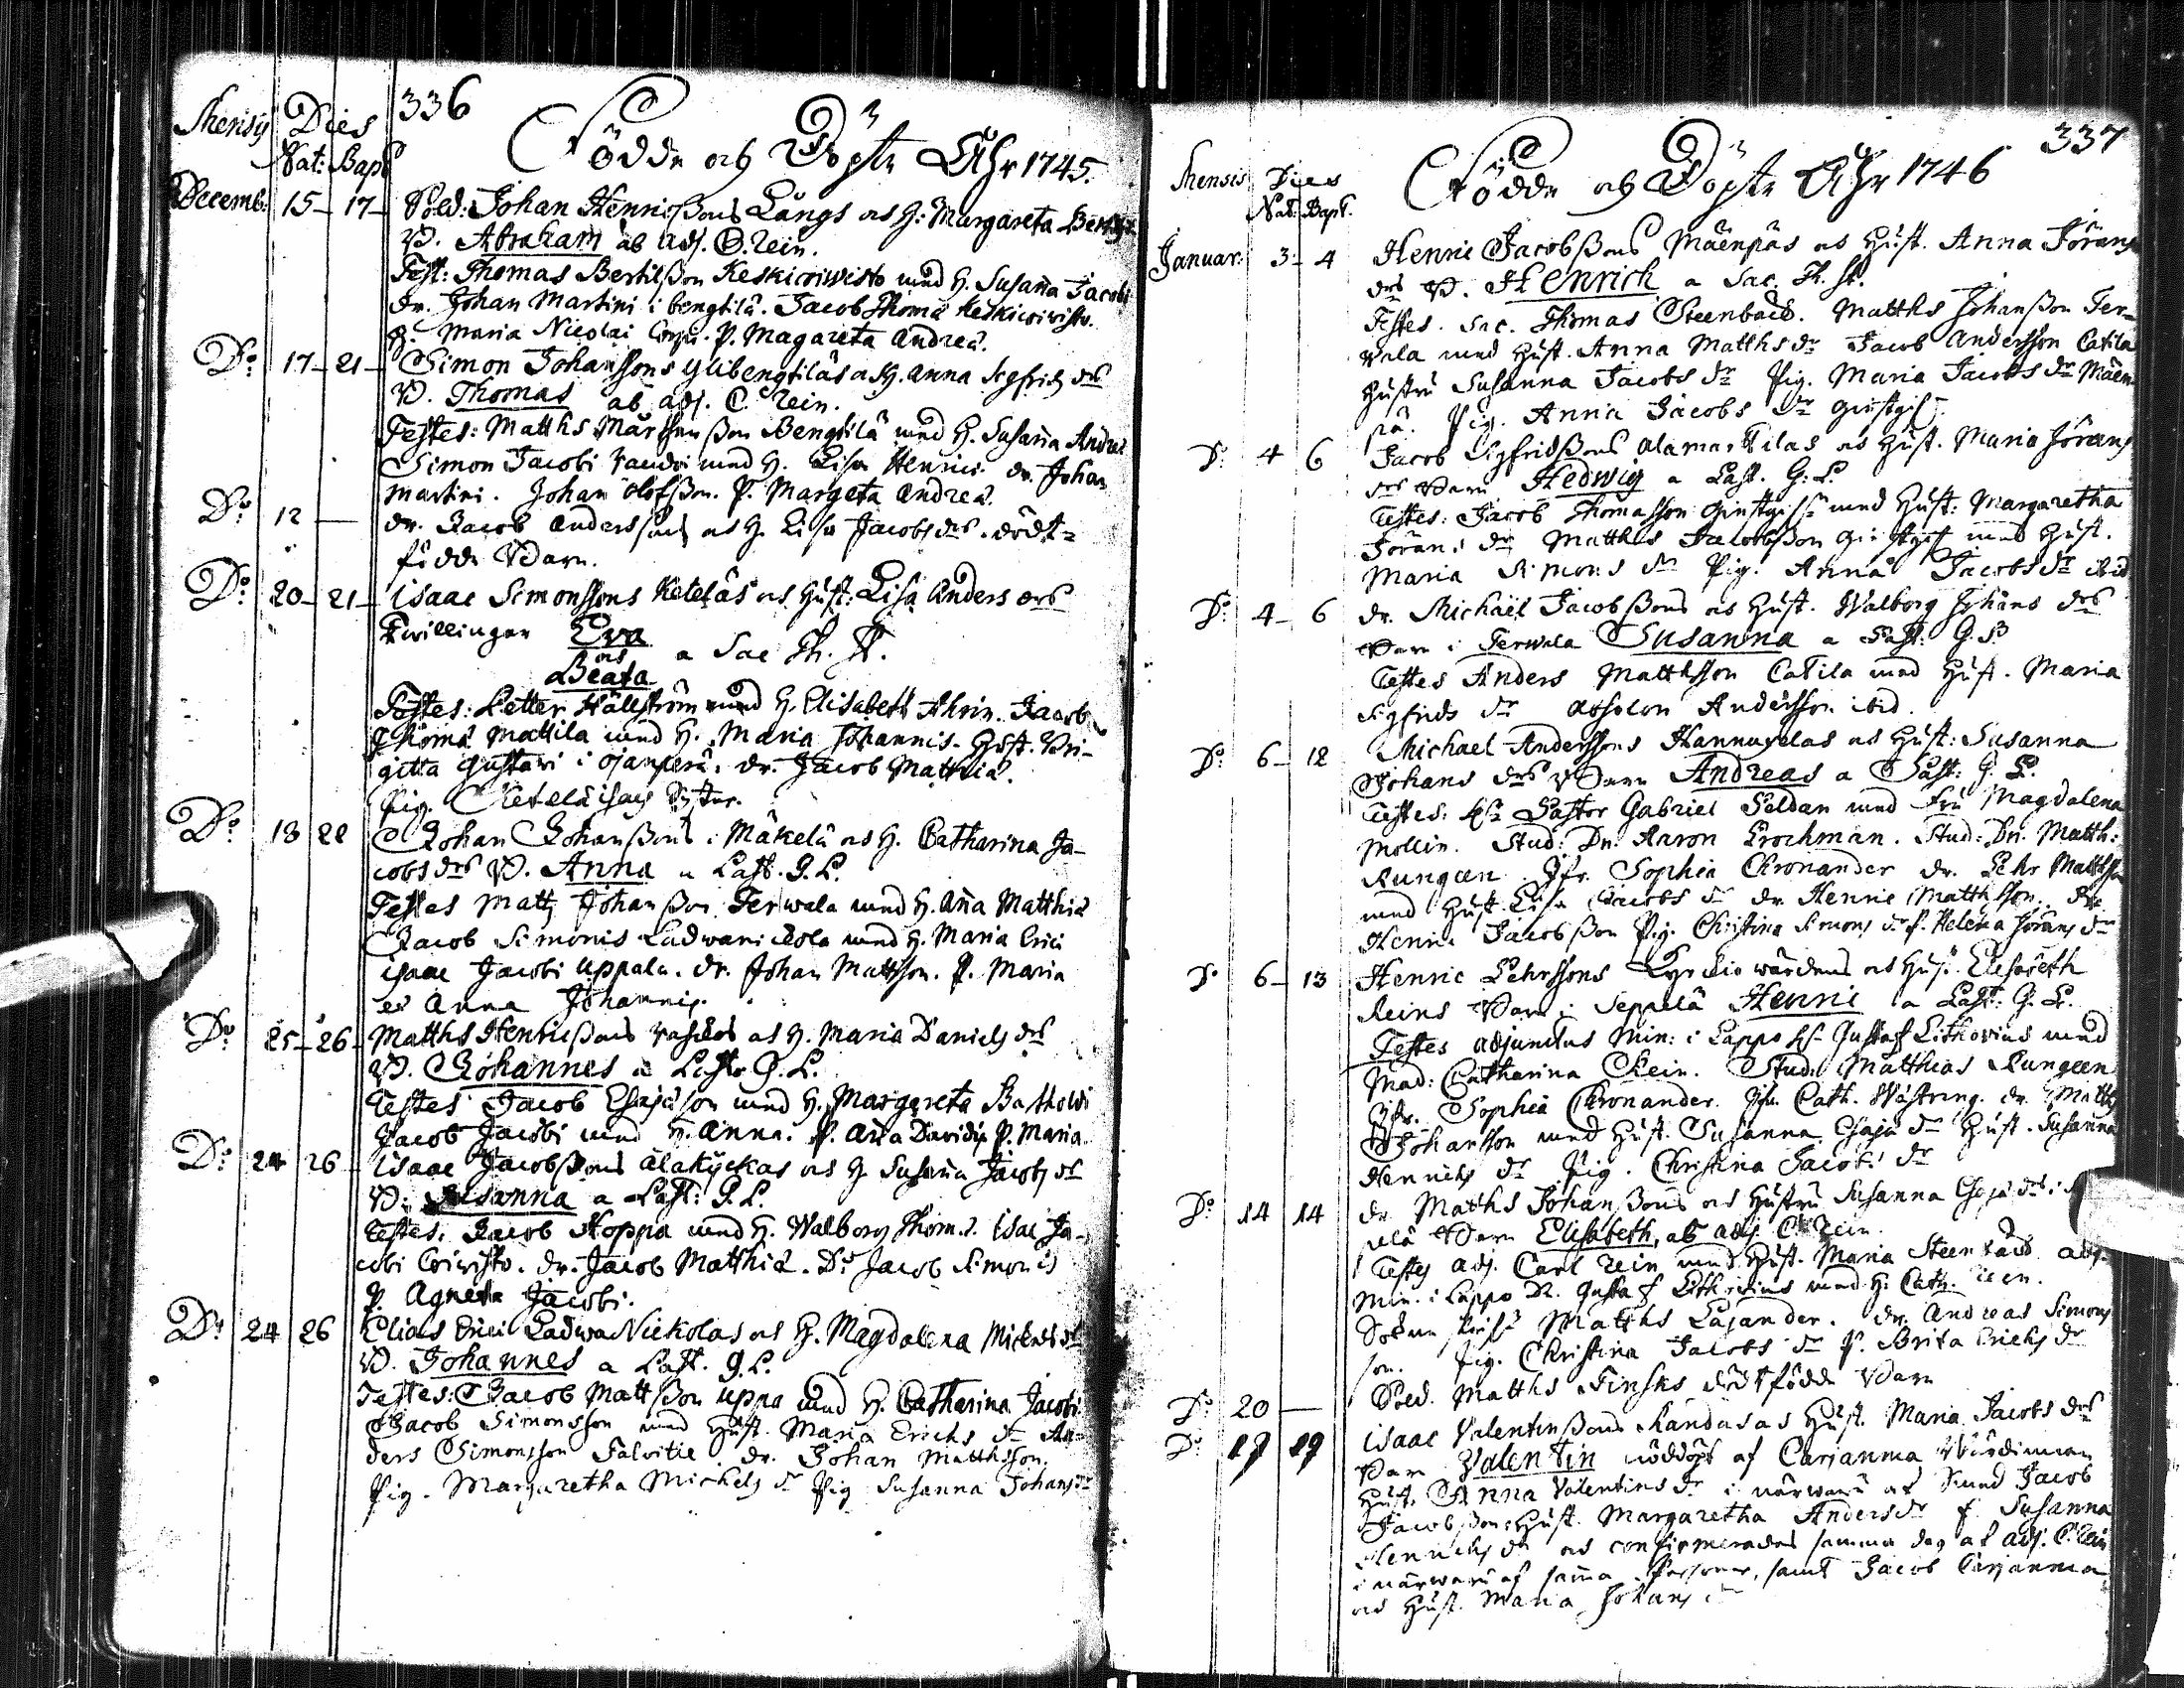 336
Mensis Dies
Nat: Bapt
Födde och Döpte Åhr 1745.
Decemb: 15 - 17 - Sold: Johan Henricßons Längs och H: Margareta Bertils
B. Abraham ab adj. C. Rein.
Test: Thomas Bertilßon Keskicoiwisto med H. Susanna Jacobi
dr. Johan Martini i bengtilä. Jacob Thomæ Keskicoiwisto.
H. Maria Nicolai P. Magareta Andreæ.
Do 17 - 21 - Simon Johanssons Ylibengtiläs och H. Anna Sigfrids drs
B. Thomas ab adj. C. Rein.
Testes: Matths Mårtensßon Bengtilä med H. Susanna Andreæ
Simon Jacobi Raudoi med H. Lisa Henrici dr. Johan
Martini. Johan Olofßon. P. Margeta Andreæ.
Do 12 — dr. Jacob Anderssons och H. Lisa Jacobsdrs. dödt-
födde Barn.
Do 20 - 21 - Isaac Simonssons Keteläs och Hust: Lisa Anders drs
Twillingar Eva
och a Sac Th. St.
Beata
Testes: Petter Hällström med H. Elisabeth Thrin. Jacob
Thomæ Mattila med H. Maria Johannis. Hust. Bri-
gitta Gustavi i Ojanperä. dr. Jacob Matthiæ.
Pig. Ketelä Isacs Syster.
Do 18 22 Johan Johanßons i Mäkelä och H. Catharina Ja-
cobsdrs B. Anna a Past. G. P.
Testes Matts Johanßon Terwala med H. Anna Matthiæ
Jacob Simonis Ladwanickola med H. Maria Erici
Isaac Jacobi Uppala. dr. Johan Mattsson. P. Maria
et Anna Johannis.
Do 25 - 26 - Matths Henricßons och H. Maria Daniels drs
B. Johannes a Past. G. P.
Testes Jacob Esajæson med H. Margareta Bartholdi
Jacob Jacobi med H. Anna. P. Anna Davidis P. Maria
Do 24 26 Isaac Jacobßons Alakyckas och H Susanna Jacobs dr
B: Susanna a Past: G. P.
Testes. Jacob Hoppa med H. Walborg Thom. Isac Ja-
cobi Coiwisto. dr. Jacob Matthiæ. Dr Jacob Simonis
P. Agneta Jacobi.
Do 24 26 Elias Erici Ladwa Nickolas och H. Magdalena Michels dr
B. Johannes a Past. G. P.
Testes: Jacob Mattßon Uppa med H. Catharina Jacobi
Jacob Simonsson med Hust. Maria Erichs dr An-
ders Simonsson Falvitie. dr. Johan Matthsson.
Pig. Margaretha Michels dr Pig Susanna Johans dr
337
Mensis Dies
Nat: Bapt.
Födde och Döpte Åhr 1746
Januar: 3 - 4 Henric Jacobßons Mäenpäs och Hust. Anna Jörans
drs B. Henrich a Sac. Th. St.
Testes. Sac. Thomas Steenbäck. Matths Johanßon Ter-
wala med Hust. Anna Matthsdr Jacob Andersson Catila
Hustru Susanna Jacobs dr Pig. Maria Jacobs dr Mäen-
pä. Pig. Anna Jacobs dr
Do 4 6 Jacob Sigfridßons Alamartilas och Hust. Maria Jörans
drs Barn Hedwig a Past. G. P.
Testes: Jacob Thomasson med Hust: Margaretha
Jörans dr Matths Jacobsson med Hust.
Maria Simons dr Pig. Anna Jacobsdr ibid
Do 4 - 6 dr. Michaël Jacobßons och Hust. Walborg Johans drs
Barn i Terwala Susanna a Past: G. P.
Testes Anders Matthsson Catila med Hust. Maria
Sigfrids dr Absolon Andersson ibid.
Do 6 - 12 Michael Anderssons Hannuxelas och Hust: Susanna
Johans drs Barn Andreas a Past: G. P.
Testes: Hr Pastor Gabriel Peldan med Fru Magdalena
Mollin. Stud: Dn. Aaron Brochman. Stud: Dn. Matth:
Rungeen. Jfr. Sophia Cronander dr. Pehr Matthsson
med Hust. Lisa Jacobs dr dr Henric Matthsson. Dr
Henric Jacobßon Pig. Christina Simons dr P. Helena Jörans dr
Do 6 - 13 Henric Pehrssons Kyrckiowärdens och Hust. Elisabeth
Reins Barn i Seppälä Henric a Past: G. P.
Testes Adjunctus Min: i Lappo Hr Gustaf Lithovius med
Mad: Catharina Rein. Stud: Matthias Rungeen
Jfr. Sophia Cronander. Jfr. Cath. Wästring. dr. Matths
Johansson med Hust. Susanna Esajæ dr Hust. Susanna
Henrichs dr Pig. Christina Jacobs dr
Do 14 14 dr Matths Johanßons och Hustru Susanna Esajæ drs i
Barn Elisabeth, ab adj. C. Rein.
Testes adj. Carl Rein med Hust. Maria Steenbäck adj.
Min. i Lappo Dn. Gustaf Lithovius med H. Cath. Rein.
Sokne Matths Lajander. dr. Andreas Simons
son. Pig. Christina Jacobs dr P. Brita Erichs dr
Do 20 — Sold. Matths Finsks dödtfödde Barn
Do 17 19 Isaac Valentinßons Randas och Hust. Maria Jacobs drs
Barn Valentin nöddöpt af Carjanma Wärdinnan
Hust. Anna Valentins dr i närwaru af Smed Jacob
Jacobßons Hust. Margaretha Anders dr f. Susanna
Henrichs dr och confirmerades samma dag af adj. C. Rein
i närwaru af samma Personer, samt Jacob Carjanma
och Hust. Maria Johans dr